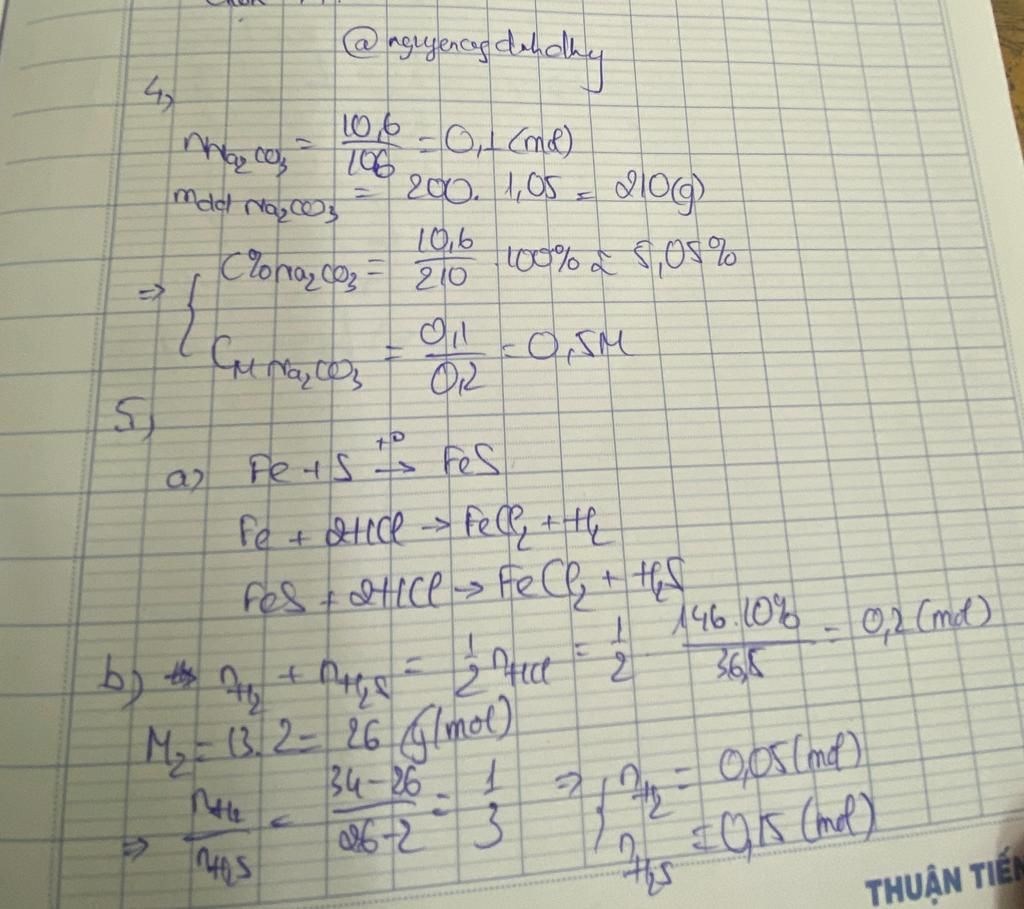 @nguyencgdnhdhy
4,
nNa₂CO₃ = 10,6/106 = 0,1 (mol)
mdd Na₂CO₃ = 200. 1,05 = 210(g)
⇒ { C%Na₂CO₃ = 10,6/210 . 100% ≈ 5,05%
CM Na₂CO₃ = 0,1/0,2 = 0,5M
5,
a) Fe + S t°→ FeS
Fe + 2HCl → FeCl₂ + H₂
FeS + 2HCl → FeCl₂ + H₂S
b) nH₂ + nH₂S = 1/2 nHCl = 1/2 . 146.10%/36,5 = 0,2 (mol)
M₂ = 13.2 = 26 (g/mol)
⇒ nH₂/nH₂S = 34-26/26-2 = 1/3 ⇒ { nH₂ = 0,05 (mol)
nH₂S = 0,15 (mol)
THUẬN TIẾN